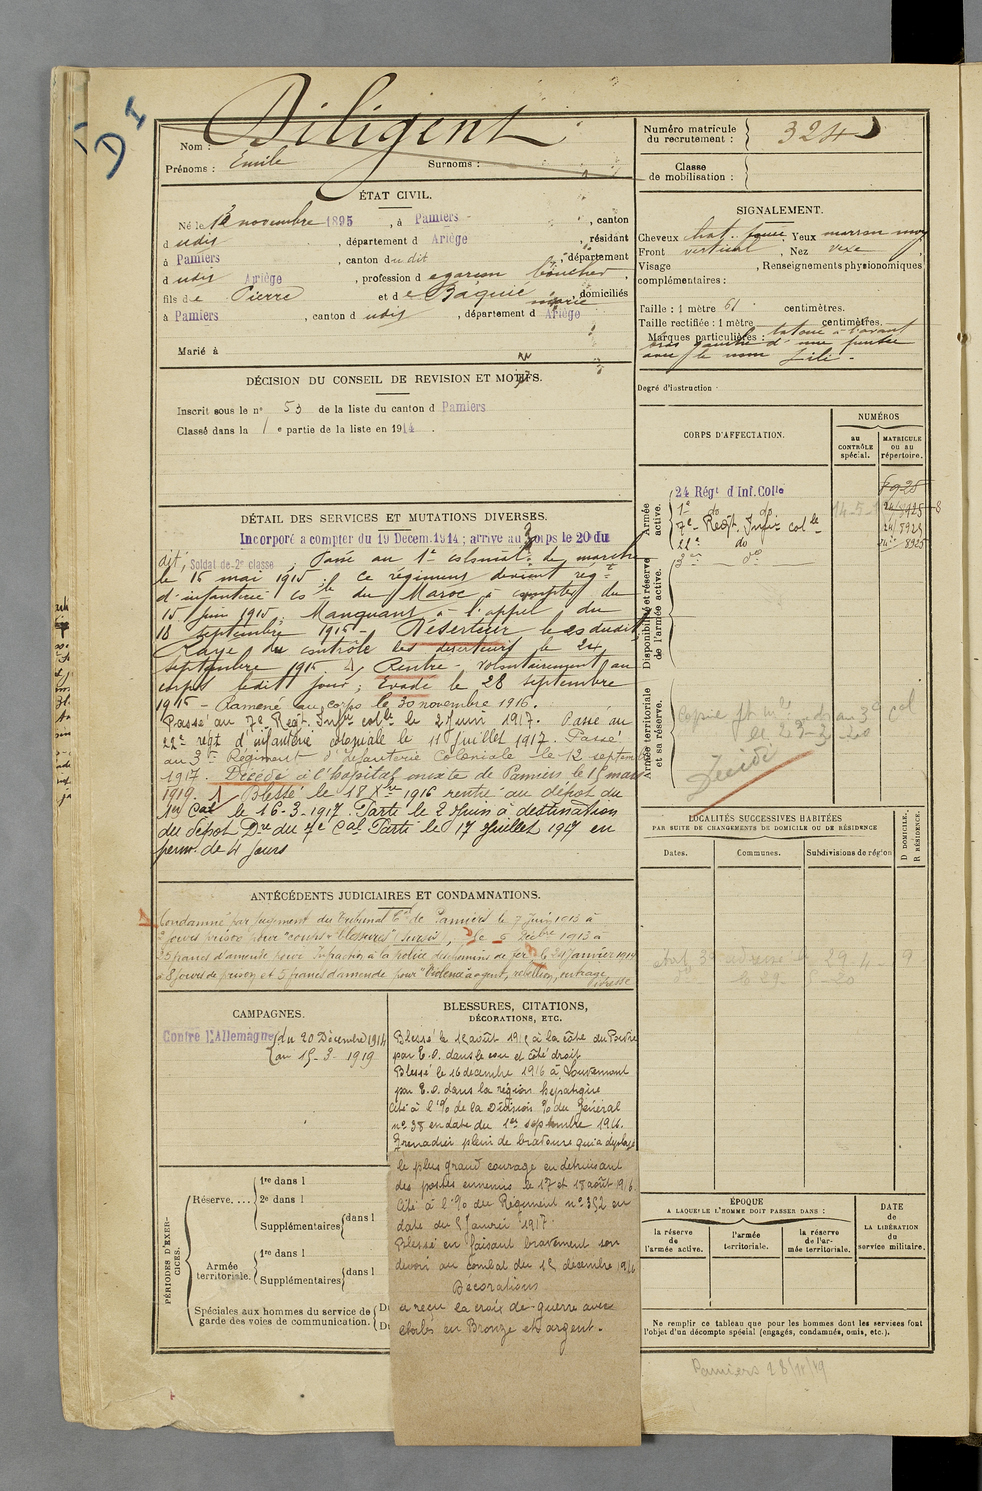 D I
Nom : Diligent
Prénoms : Emile
Surnoms :
Numéro matricule du recrutement : 324
Classe de mobilisation :
ÉTAT CIVIL.
Né le novembre 1895, à Pamiers, canton
d udis, département d Ariège, résidant
à Pamiers, canton d udit, département
d udis Ariège, profession d e garçon boucher,
fils d e Pierre et d e Baquié marie, domiciliés
à Pamiers, canton d udis, département d Ariège
Marié à
DÉCISION DU CONSEIL DE REVISION ET MOTIFS.
Inscrit sous le n° 53 de la liste du canton d Pamiers
Classé dans la 1 e partie de la liste en 1914.
SIGNALEMENT.
Cheveux chat. foncé, Yeux marron moy
Front vertical, Nez vexe
Visage , Renseignements physionomiques
complémentaires :
Taille : 1 mètre 61 centimètres.
Taille rectifiée : 1 mètre centimètres.
Marques particulières : tatoué à l'avant
bras gauche d' une pensée
avec le nom Lili -
Degré d'instruction
CORPS D'AFFECTATION.
NUMÉROS
au CONTRÔLE spécial.
MATRICULE ou au répertoire.
Armée active.
24 Régt d Inf. Colle
1er do do
7e Regt. Infie colle
22e do
3e do
8925
Disponibilité et réserve de l'armée active.
Armée territoriale et sa réserve.
Décédé
DÉTAIL DES SERVICES ET MUTATIONS DIVERSES.
Incorporé a compter du 19 Décem. 1914; arrivé au Corps le 20 du
dit, Soldat de 2e classe ; Passé au 1er colonial de marche
le 16 mai 1915 ; le ce régiment devient régt
d'infanterie cole du Maroc à compter du
15 Juin 1915. Manquant à l'appel du
18 septembre 1915 - Déserteur le dudit,
Rayé du contrôle les déserteurs le 24
septembre 1915 Rentré volontairement au
corps ledit jour ; Evadé le 28 septembre
1915 - Ramené au corps le 30 novembre 1916.
Passé au 7e Regt. Infie colle le 2 Juin 1917. Passé au
22e regt d'infanterie coloniale le 11 Juillet 1917. Passé
au 3e Régiment d'Infanterie Coloniale le 12 septembre
1917. Décédé à l'hôpital mixte de Pamiers le 15 mars
1919. Blessé le 18 Xbre 1916 rentré au dépôt du
1er Cal le 16-3-1917. Parti le 2 Juin à destination
du dépôt Dre du 7e Cal Parti le 17 Juillet 1917 en
perm. de 4 jours
ANTÉCÉDENTS JUDICIAIRES ET CONDAMNATIONS.
Condamné par jugement du Tribunal Cel de Pamiers le 7 juin 1913 à
jours prison pour "coups & blessures" (sursis), 2° le 6 Xcbre 1913 à
25 francs d'amende pour infraction à la police des chemins de fer 3° le 24 Janvier 1914
à 8 jours de prison et 5 francs d'amende pour "violence à agent, rébellion, outrage,
ivresse
LOCALITÉS SUCCESSIVES HABITÉES
PAR SUITE DE CHANGEMENTS DE DOMICILE OU DE RÉSIDENCE
D DOMICILE. R RÉSIDENCE.
Dates.
Communes.
Subdivisions de région
CAMPAGNES.
Contre l'Allemagne du 20 Décembre 1914
au 15-3-1919
BLESSURES, CITATIONS,
DÉCORATIONS, ETC.
Blessé le 15 août 1915 à la côte du Poivre
par E.O. dans le cou et côté droit
Blessé le 16 décembre 1916 à Louvemont
par E.O. dans la région hépatique
Cité à l'% de la Division % du Général
n° 38 en date du 1er septembre 1916.
Grenadier plein de bravoure qui a déployé
le plus grand courage en détruisant
des postes ennemis le 17 et 18 août 1916.
Cité à l'% du Régiment n° 352 en
date du 5 Janvier 1917.
Blessé en faisant bravement son
devoir au combat du 15 décembre 1916
Décorations
a reçu la croix de guerre avec
étoiles en Bronze et argent.
PÉRIODES D'EXERCICES.
Réserve....
1re dans l
2e dans l
Supplémentaires dans l
Armée territoriale.
1re dans l
Supplémentaires dans l
Spéciales aux hommes du service de
garde des voies de communication.
ÉPOQUE
A LAQUELLE L'HOMME DOIT PASSER DANS :
la réserve de l'armée active.
l'armée territoriale.
la réserve de l'armée territoriale.
DATE
DE LA LIBÉRATION
du service militaire.
Ne remplir ce tableau que pour les hommes dont les services font
l'objet d'un décompte spécial (engagés, condamnés, omis, etc.).
Pamiers 28/11/19